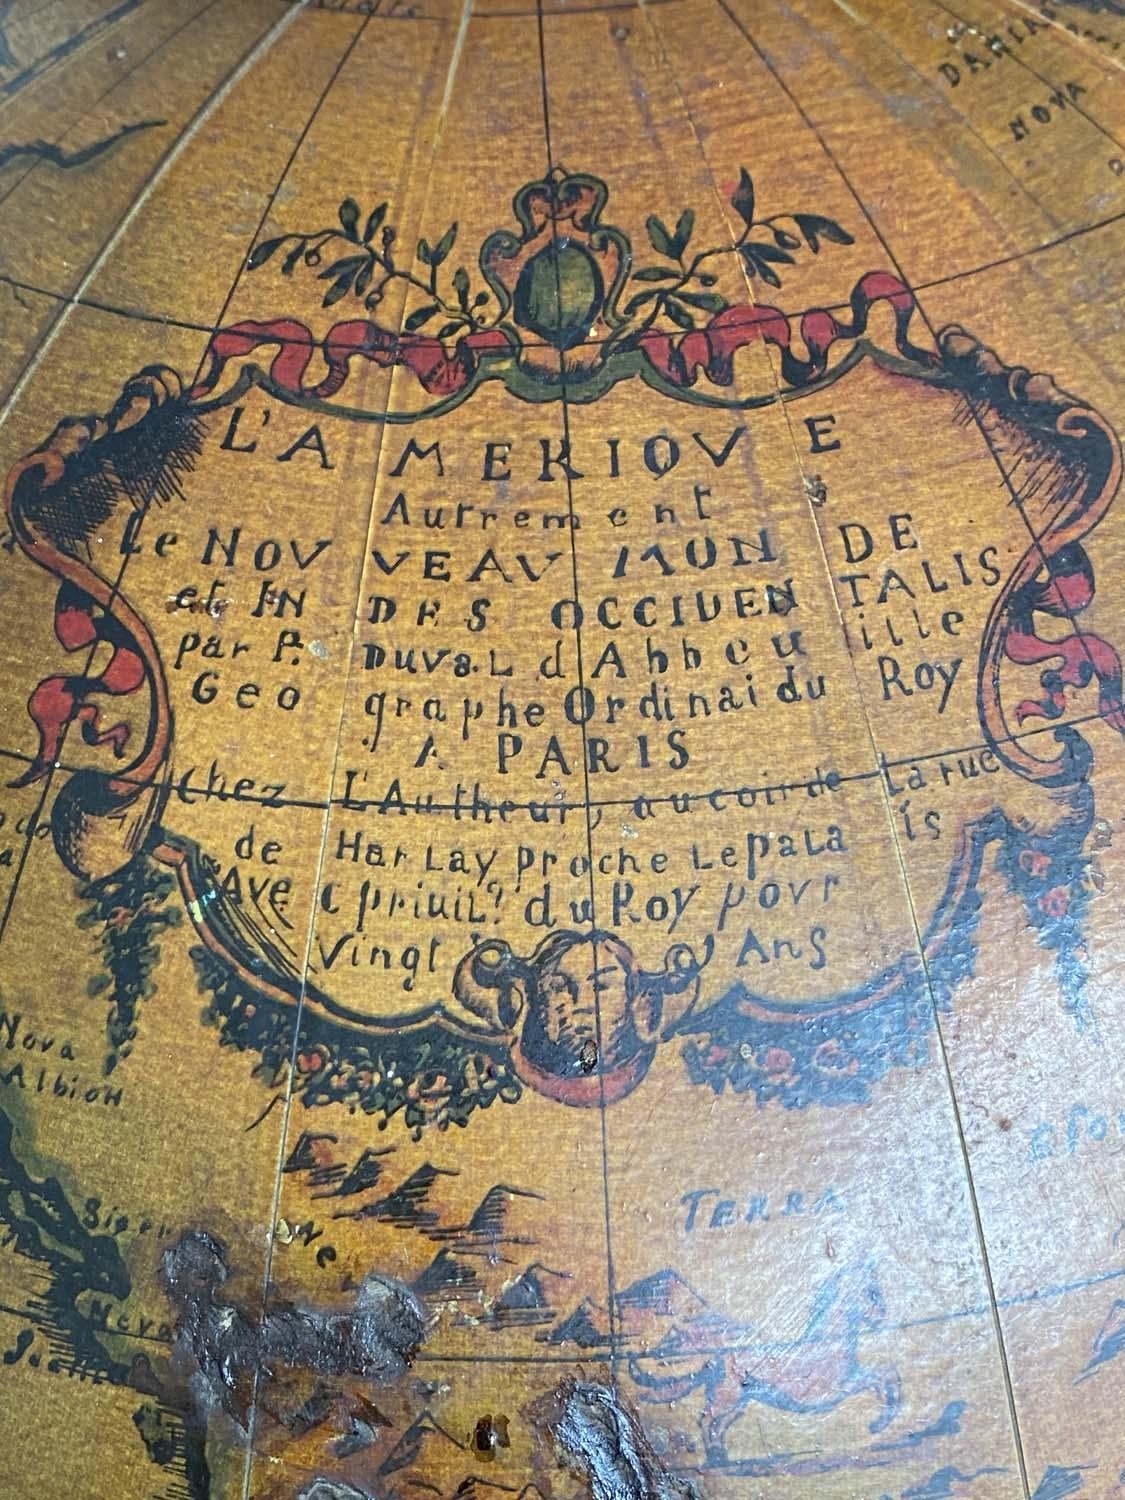 DANIA
NOVA
L'AMERIQVE
Autrement
Le NOVVEAV MONDE
et INDES OCCIDENTALIS
par P. DUVAL d'Abbeuille
Geographe Ordinai du Roy
A PARIS
chez L'Autheur, au coin de La rue
de HarLay proche LepaLais
Avec priuiL? du Roy povr
Vingt Ans
Nova
Albion
TERRA